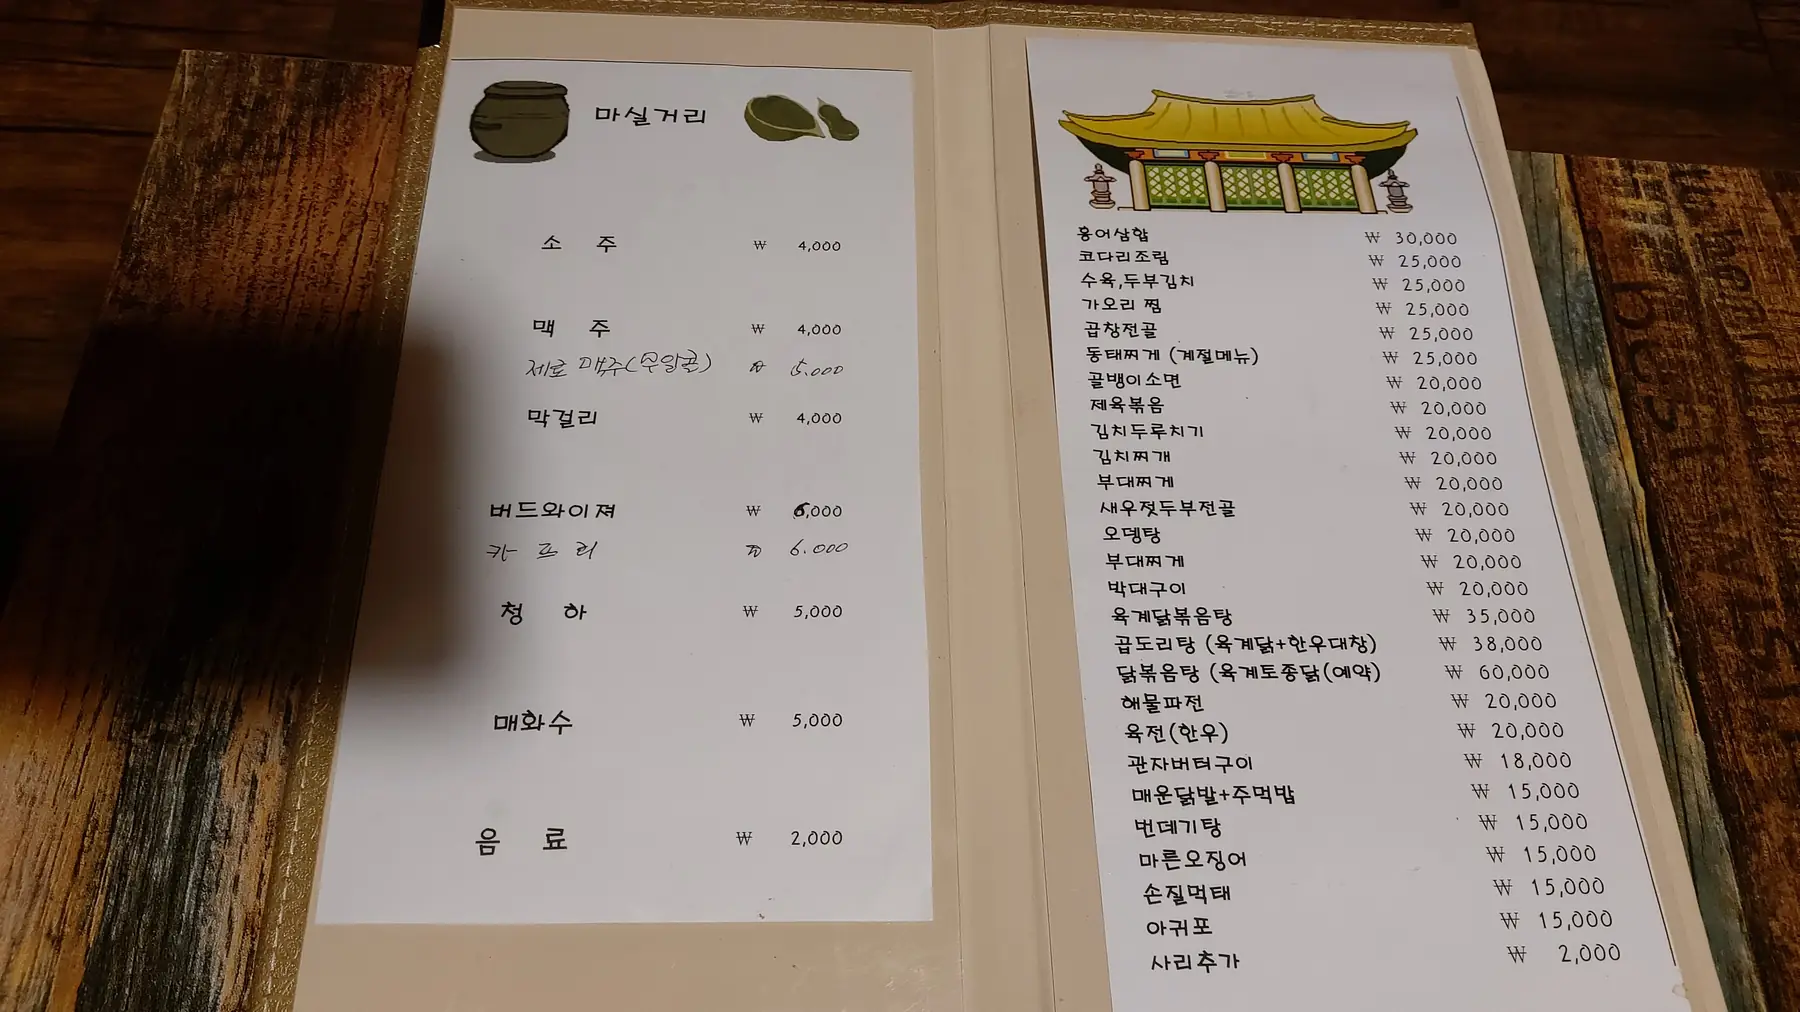 마실거리
소 주 ₩ 4,000
맥 주 ₩ 4,000
제로 맥주(무알콜) ₩ 5.000
막걸리 ₩ 4,000
버드와이져 ₩ 6,000
카 프 리 ₩ 6.000
청 하 ₩ 5,000
매화수 ₩ 5,000
음 료 ₩ 2,000
홍어삼합 ₩ 30,000
코다리조림 ₩ 25,000
수육,두부김치 ₩ 25,000
가오리 찜 ₩ 25,000
곱창전골 ₩ 25,000
동태찌게 (계절메뉴) ₩ 25,000
골뱅이소면 ₩ 20,000
제육볶음 ₩ 20,000
김치두루치기 ₩ 20,000
김치찌개 ₩ 20,000
부대찌게 ₩ 20,000
새우젓두부전골 ₩ 20,000
오뎅탕 ₩ 20,000
부대찌게 ₩ 20,000
박대구이 ₩ 20,000
육계닭볶음탕 ₩ 35,000
곱도리탕 (육계닭+한우대창) ₩ 38,000
닭볶음탕 (육계토종닭(예약) ₩ 60,000
해물파전 ₩ 20,000
육전(한우) ₩ 20,000
관자버터구이 ₩ 18,000
매운닭발+주먹밥 ₩ 15,000
번데기탕 ₩ 15,000
마른오징어 ₩ 15,000
손질먹태 ₩ 15,000
아귀포 ₩ 15,000
사리추가 ₩ 2,000